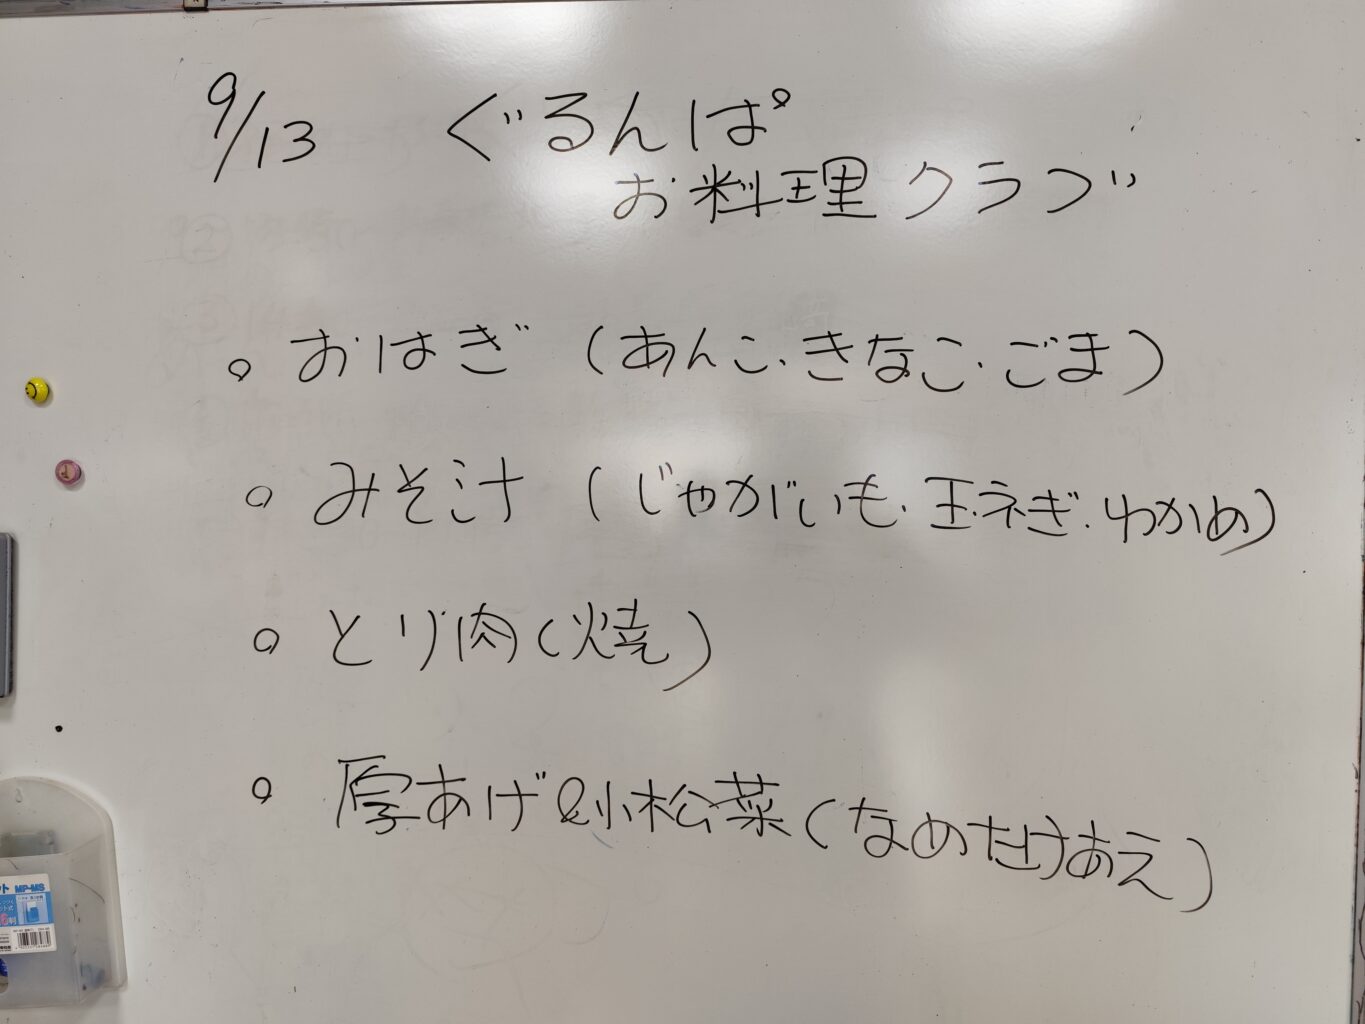 9/13 ぐるんぱ
お料理クラブ
○ おはぎ (あんこ・きなこ・ごま)
○ みそ汁 (じゃがいも・玉ネギ・わかめ)
○ とり肉(焼)
○ 厚あげ&小松菜(なめたけあえ)
MP-MS